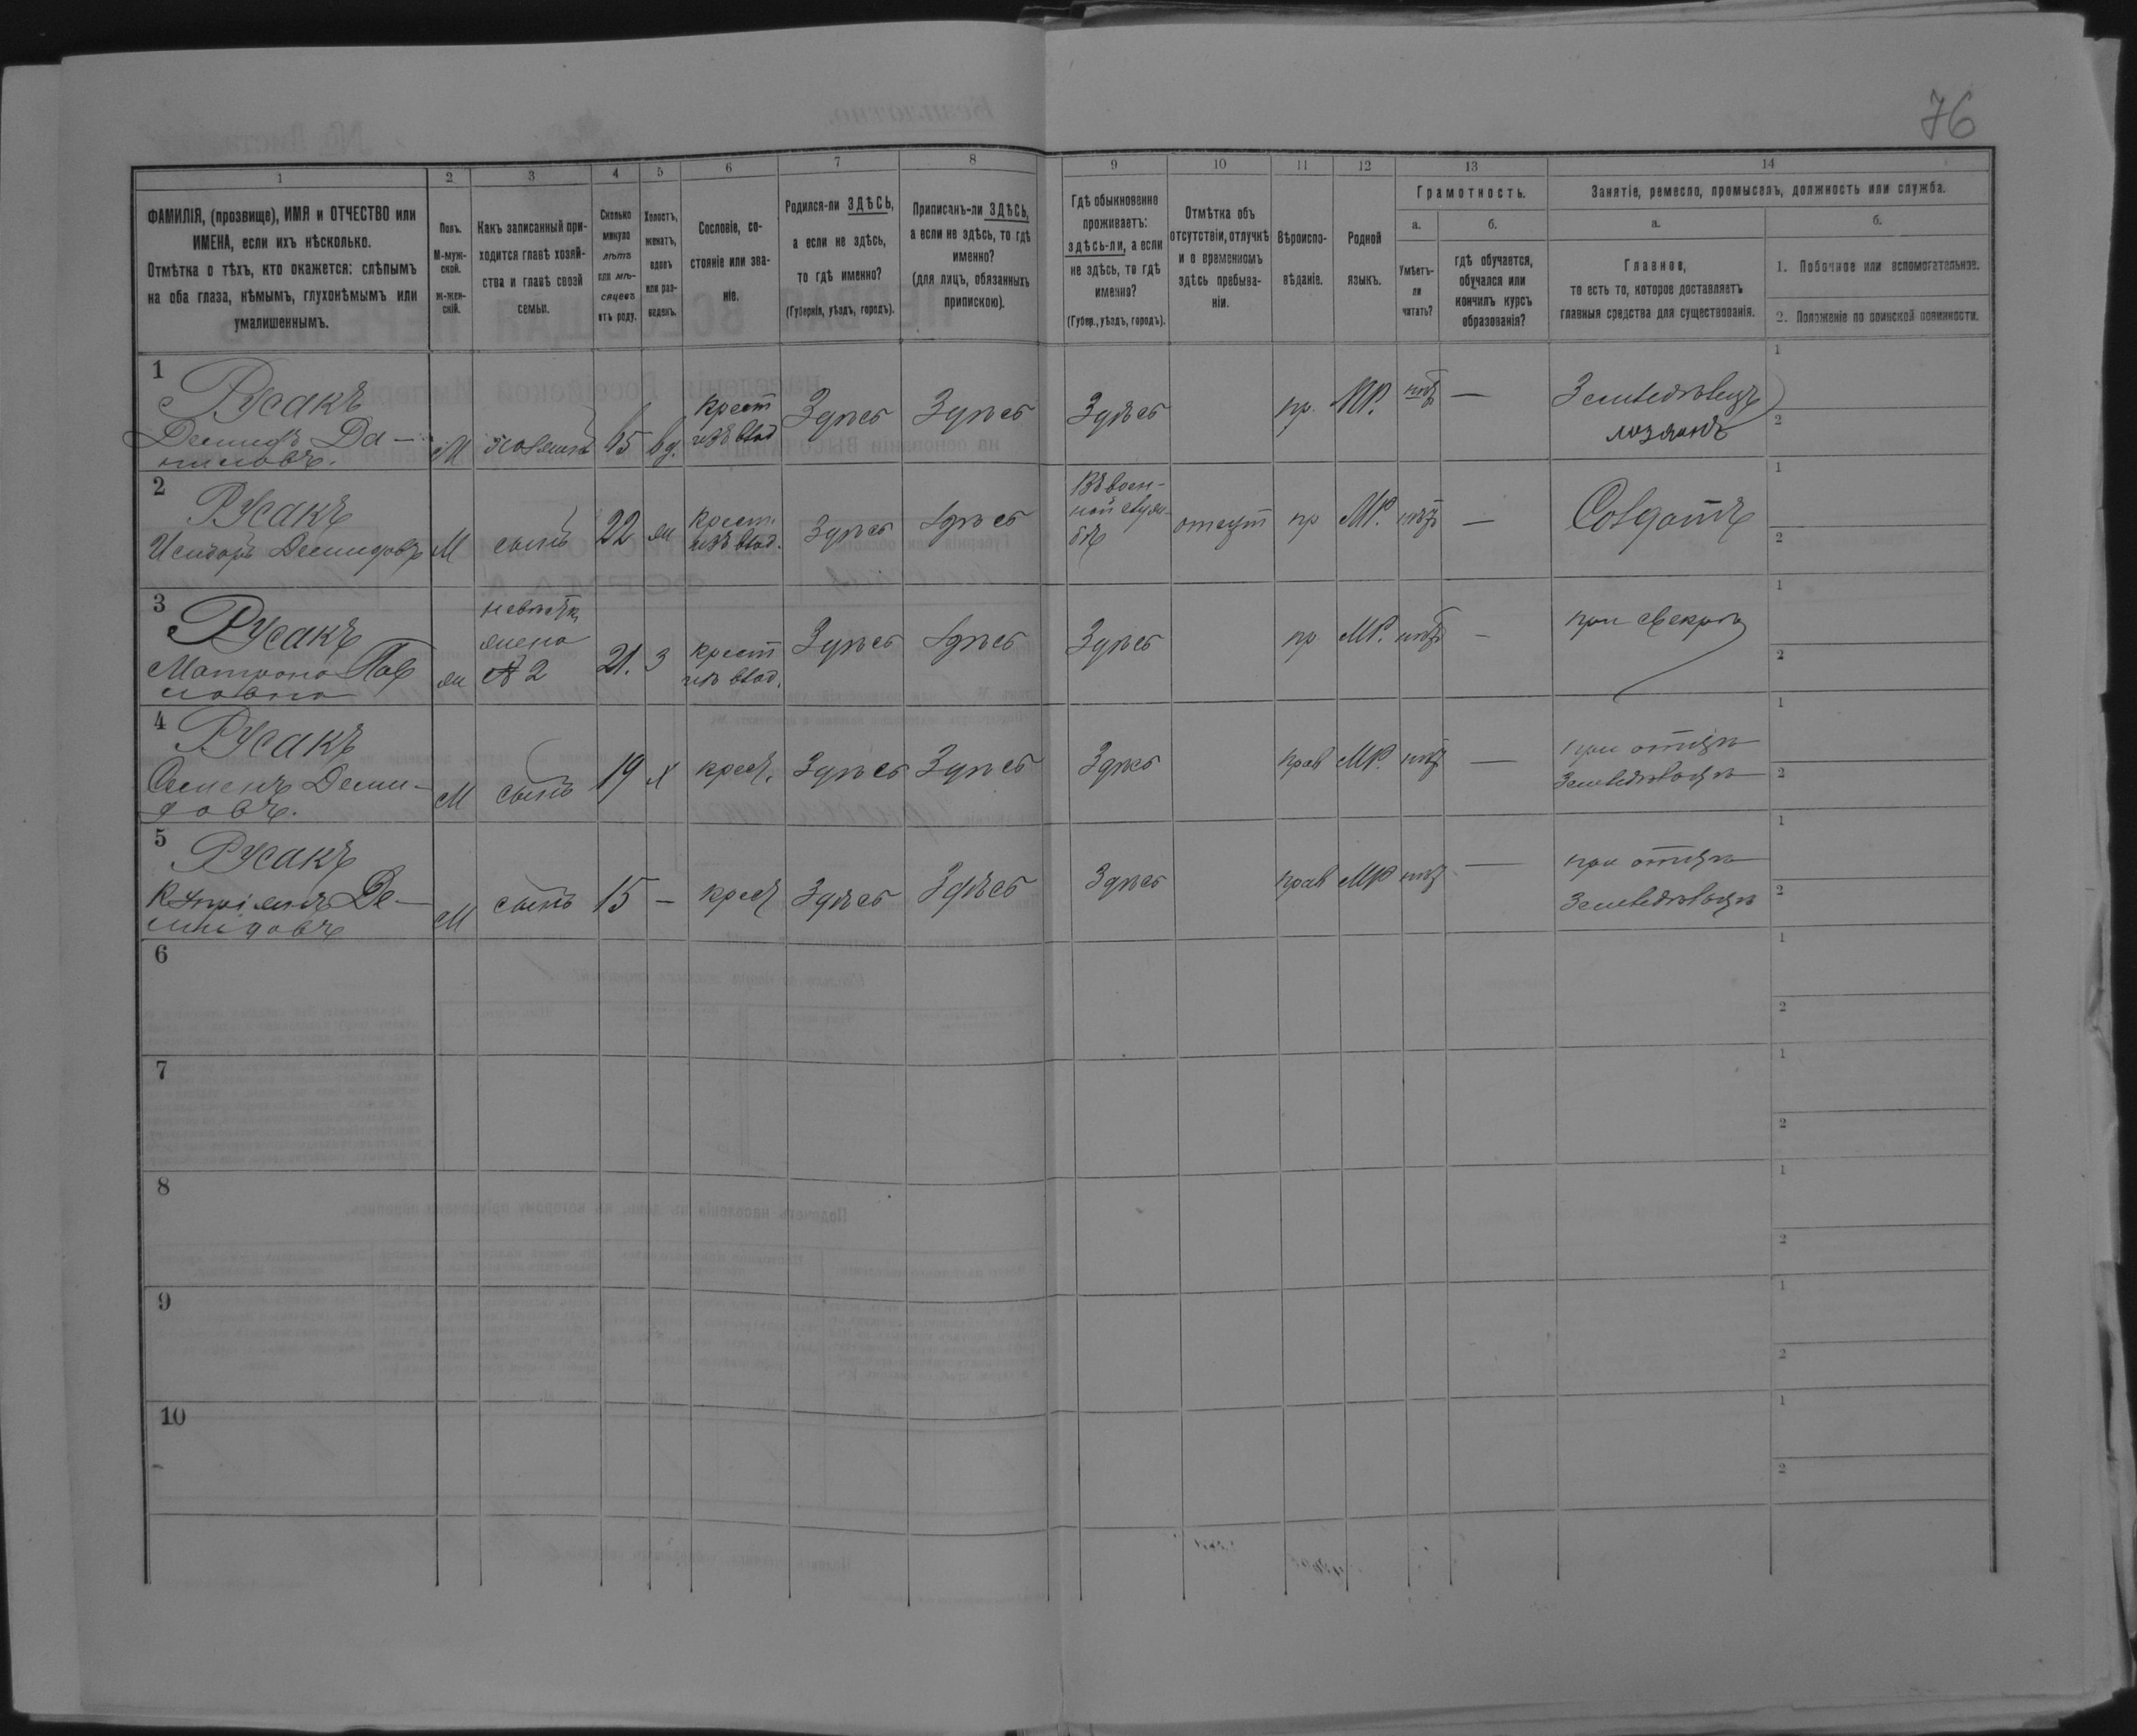 76
1 2 3 4 5 6 7 8 9 10 11 12 13 14
ФАМИЛІЯ, (прозвище), ИМЯ и ОТЧЕСТВО или
ИМЕНА, если ихъ нѣсколько.
Отмѣтка о тѣхъ, кто окажется: слѣпымъ
на оба глаза, нѣмымъ, глухонѣмымъ или
умалишеннымъ.
Полъ.
М-муж-
ской.
ж-жен-
скій.
Какъ записанный при-
ходится главѣ хозяй-
ства и главѣ своей
семьи.
Сколько
минуло
лѣтъ
или мѣ-
сяцевъ
отъ роду.
Холостъ,
женатъ,
вдовъ
или раз-
веденъ.
Сословіе, со-
стояніе или зва-
ніе.
Родился-ли ЗДѢСЬ,
а если не здѣсь,
то гдѣ именно?
(Губернія, уѣздъ, городъ).
Приписанъ-ли ЗДѢСЬ,
а если не здѣсь, то гдѣ
именно?
(для лицъ, обязанныхъ
припискою).
Гдѣ обыкновенно
проживаетъ:
здѣсь-ли, а если
не здѣсь, то гдѣ
именно?
(Губер., уѣздъ, городъ).
Отмѣтка объ
отсутствіи, отлучкѣ
и о временномъ
здѣсь пребыва-
ніи.
Вѣроиспо-
вѣданіе.
Родной
языкъ.
Грамотность.
а.
Умѣетъ-
ли
читать?
б.
гдѣ обучается,
обучался или
кончилъ курсъ
образованія?
Занятіе, ремесло, промыселъ, должность или служба.
а.
Главное,
то есть то, которое доставляетъ
главныя средства для существованія.
б.
1. Побочное или вспомогательное.
2. Положеніе по воинской повинности.
1
Русакъ
Демидъ Да-
ниловъ.
М
65
вд.
крест
изъ влад
Здѣсь
Здѣсь
Здѣсь
пр.
МР.
нѣт
—
Земледѣлецъ
хозяинъ
1
2
2
Русакъ
Исидоръ Демидовъ
М
сынъ
22
ж
крест.
изъ влад.
Здѣсь
Здѣсь
Въ воен-
ной служ-
бѣ
отсут
пр
МР.
нѣт
—
Солдатъ
1
2
3
Русакъ
Матрона Пав
ловна
ж
невѣстк,
жена
№ 2
21.
З
крест
изъ влад.
Здѣсь
Здѣсь
Здѣсь
пр
МР.
нѣт
-
при свекрѣ
1
2
4
Русакъ
Семенъ Деми-
довъ.
М
сынъ
19
х
крест.
Здѣсь
Здѣсь
Здѣсь
прав
МР.
нѣт
—
при отцѣ
земледѣльцѣ
1
2
5
Русакъ
Купріянъ Де-
мидовъ
М
сынъ
15
—
крест
Здѣсь
Здѣсь
Здѣсь
прав
МР
нѣт
—
при отцѣ
земледѣльцѣ
1
2
6
1
2
7
1
2
8
1
2
9
1
2
10
1
2